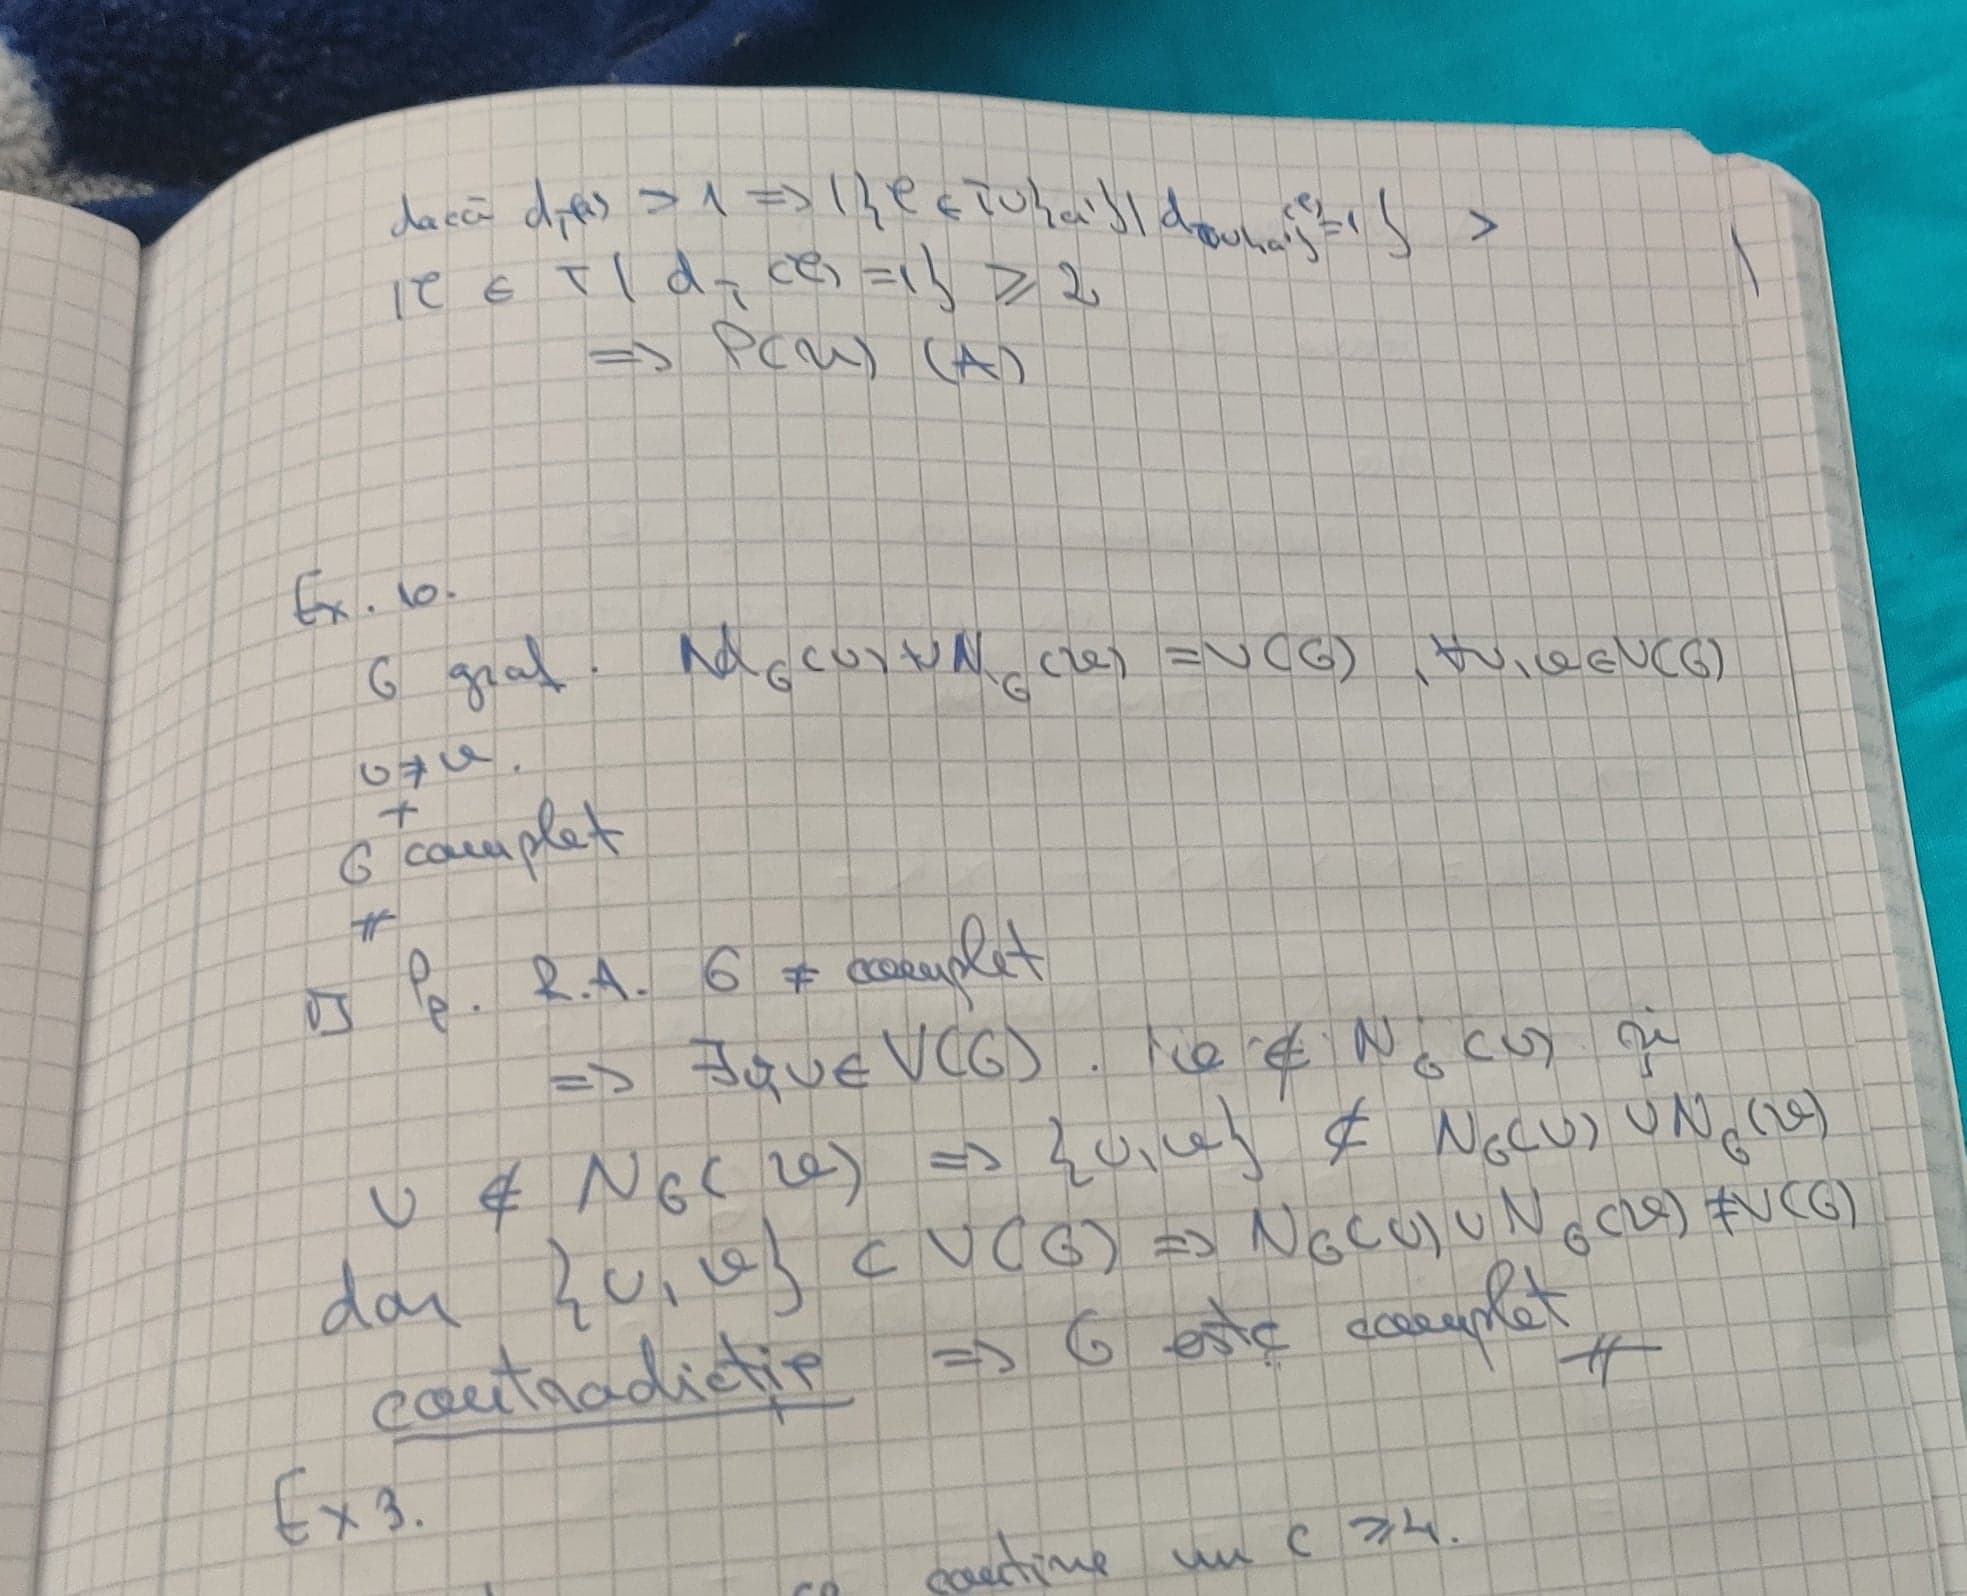 dacă d_T(a) > 1 => |{e ∈ T∪{a'} | d_{T∪{a'}}(e)=1} >
|e ∈ T | d_T(e) =1} ⩾ 2
=> P(n) (A)
Ex. 10.
G graf. N_G(u) ∪ N_G(v) = V(G), ∀u,v∈V(G)
u≠v.
G complet
#
Pp. R.A. G ≠ complet
=> ∃ u ∈ V(G). v ∉ N_G(u) și
u ∉ N_G(v) => {u,v} ⊄ N_G(u) ∪ N_G(v)
dar {u,v} ⊂ V(G) => N_G(u) ∪ N_G(v) ≠ V(G)
contradicție => G este complet #
Ex 3.
ce conține un C ⩾4.